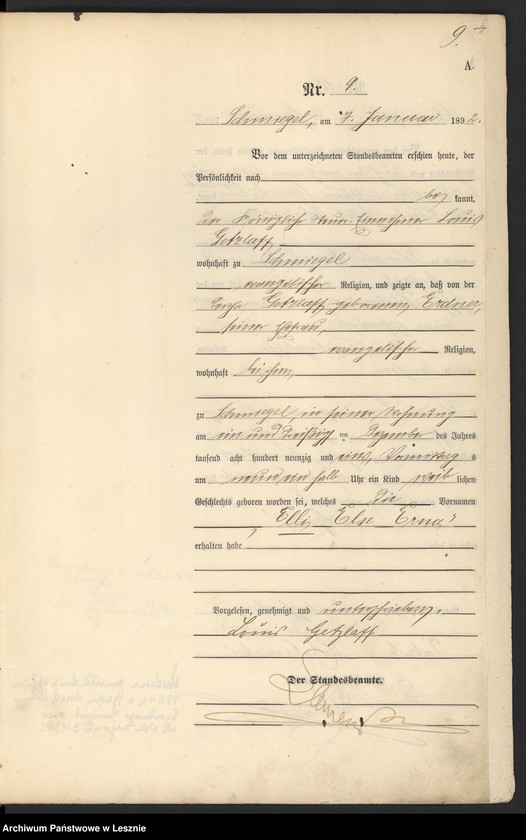 9.
A.
Nr. 9.
Schmiegel, am 7. Januar 1892.
Vor dem unterzeichneten Standesbeamten erschien heute, der
Persönlichkeit nach
be kannt,
der Königliche Steuer-Einnehmer Louis
Getzlaff
wohnhaft zu Schmiegel
evangelischer Religion, und zeigte an, daß von der
Getzlaff geborenen Erdner,
seiner Ehefrau,
evangelischer Religion,
wohnhaft bei ihm,
zu Schmiegel, in seiner Wohnung
am ein und dreißigsten Dezember des Jahres
tausend acht hundert neunzig und eins, Vormittags
um neun ein halb Uhr ein Kind weib lichen
Geschlechts geboren worden sei, welches die Vornamen
"Ellis Else Erna"
erhalten habe
Vorgelesen, genehmigt und unterschrieben.
Louis Getzlaff
Der Standesbeamte.
Archiwum Państwowe w Lesznie